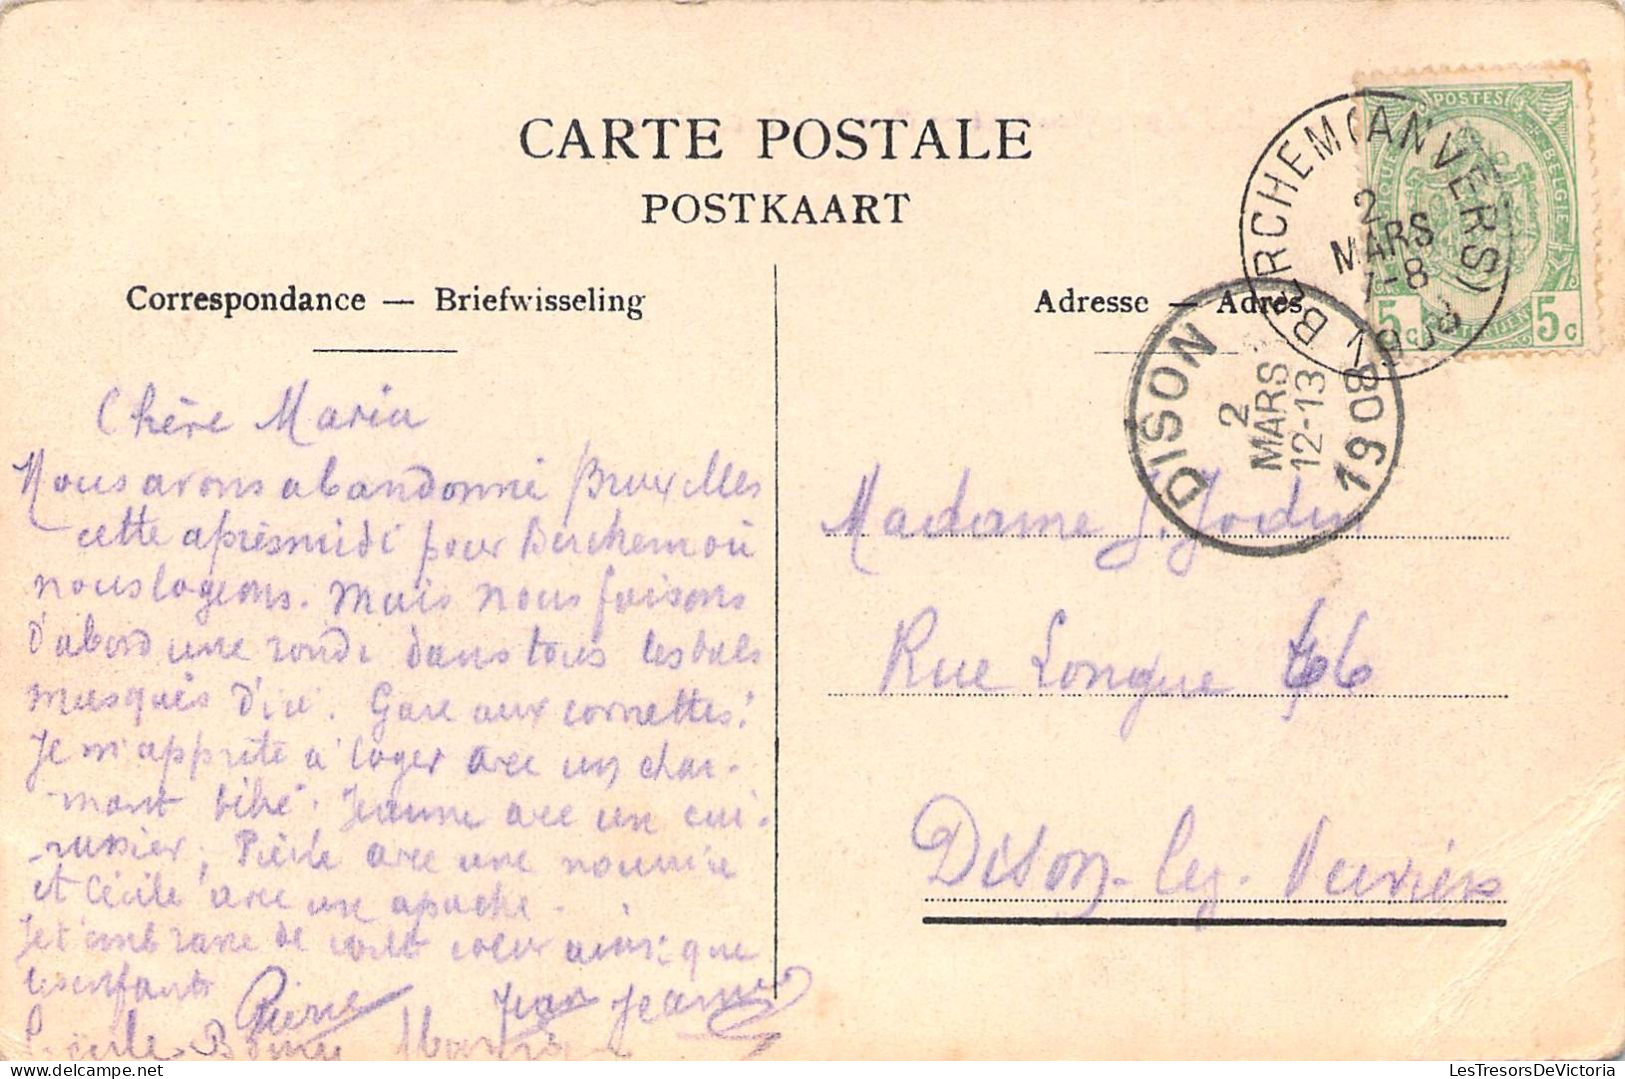 CARTE POSTALE
POSTKAART
Correspondance — Briefwisseling
Adresse — Adres
POSTES
BELGIE
5 c
5 c
BERCHEM (ANVERS)
2
MARS
7-8
1908
DISON
2
MARS
12-13
1908
Chère Maria
Nous avons abandonné Bruxelles
cette après midi pour Berchem où
nous logeons. Mais nous faisons
d'abord une ronde dans tous les bals
masqués d'ici. Gare aux cornettes!
Je m'apprête à loger avec un char-
mant bébé. Jeanne avec un cui-
rassier, Pierre avec une nourrice
et Cécile avec une apache.
Je t'embrasse de tout coeur ainsi que
les enfants
Pierre Jean Jeanne
Madame J. Jodin
Rue Longue 66
Dison-lez-Verviers
LesTresorsDeVictoria